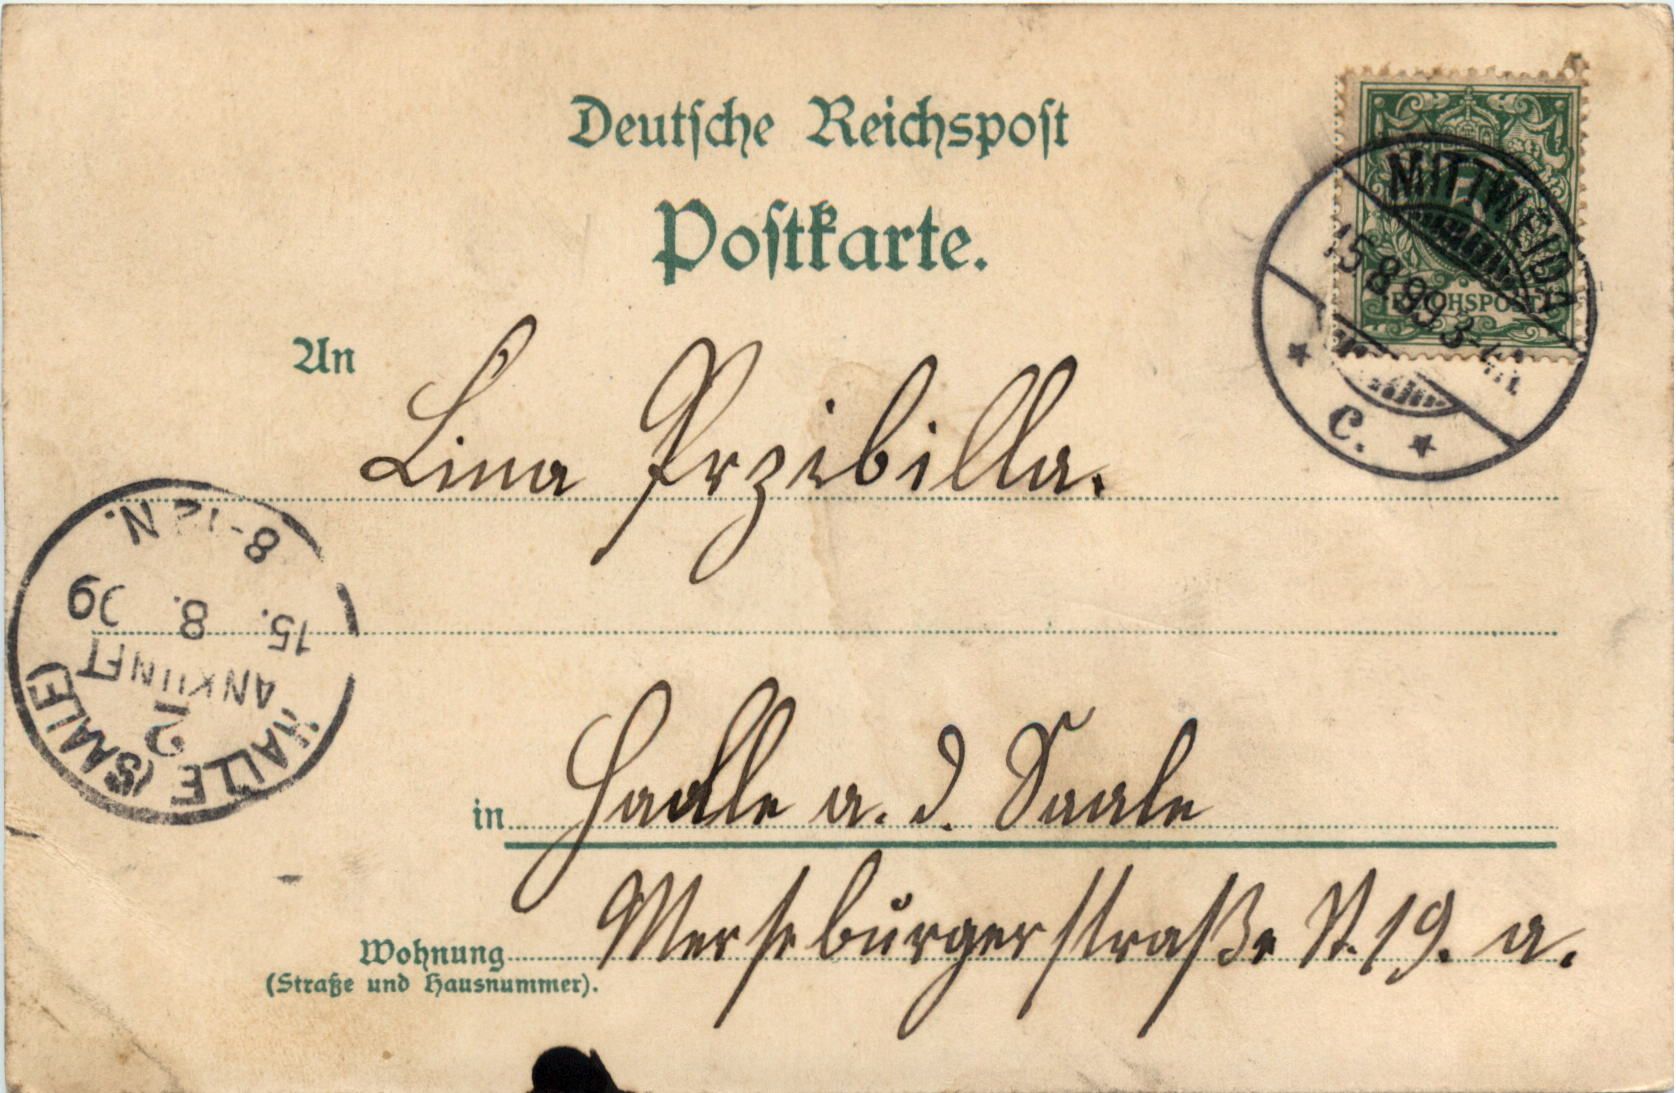 Deutsche Reichspost
Postkarte.
REICHSPOST
MITTWEIDA
15 8 99 3-4N.
C.
An
Lina Przibilla.
8-12 N.
15. 8. 99
ANKUNFT
2
HALLE (SAALE)
in Haalle a. d. Saale
Wohnung Merseburgerstraße N. 19. a.
(Straße und Hausnummer).